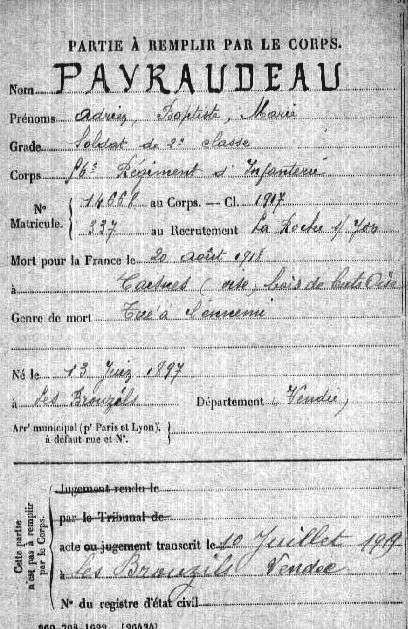 PARTIE À REMPLIR PAR LE CORPS.
Nom PAYRAUDEAU
Prénoms Adrien, Baptiste, Marie
Grade Soldat de 2e classe
Corps Régiment d'Infanterie
N° Matricule. { 14668 au Corps. — Cl. 1917
337 au Recrutement La Roche s/ Yon
Mort pour la France le 20 août 1918
à (Oise) bois de Cuts Oise
Genre de mort Tué à l'ennemi
Né le 13 Juin 1897
à Les Brouzils Département Vendée
Arrt municipal (pr Paris et Lyon),
à défaut rue et N°.
Cette partie n'est pas à remplir par le Corps.
Jugement rendu le
par le Tribunal de
acte ou jugement transcrit le 10 Juillet 1919
à Les Brouzils Vendée
N° du registre d'état civil